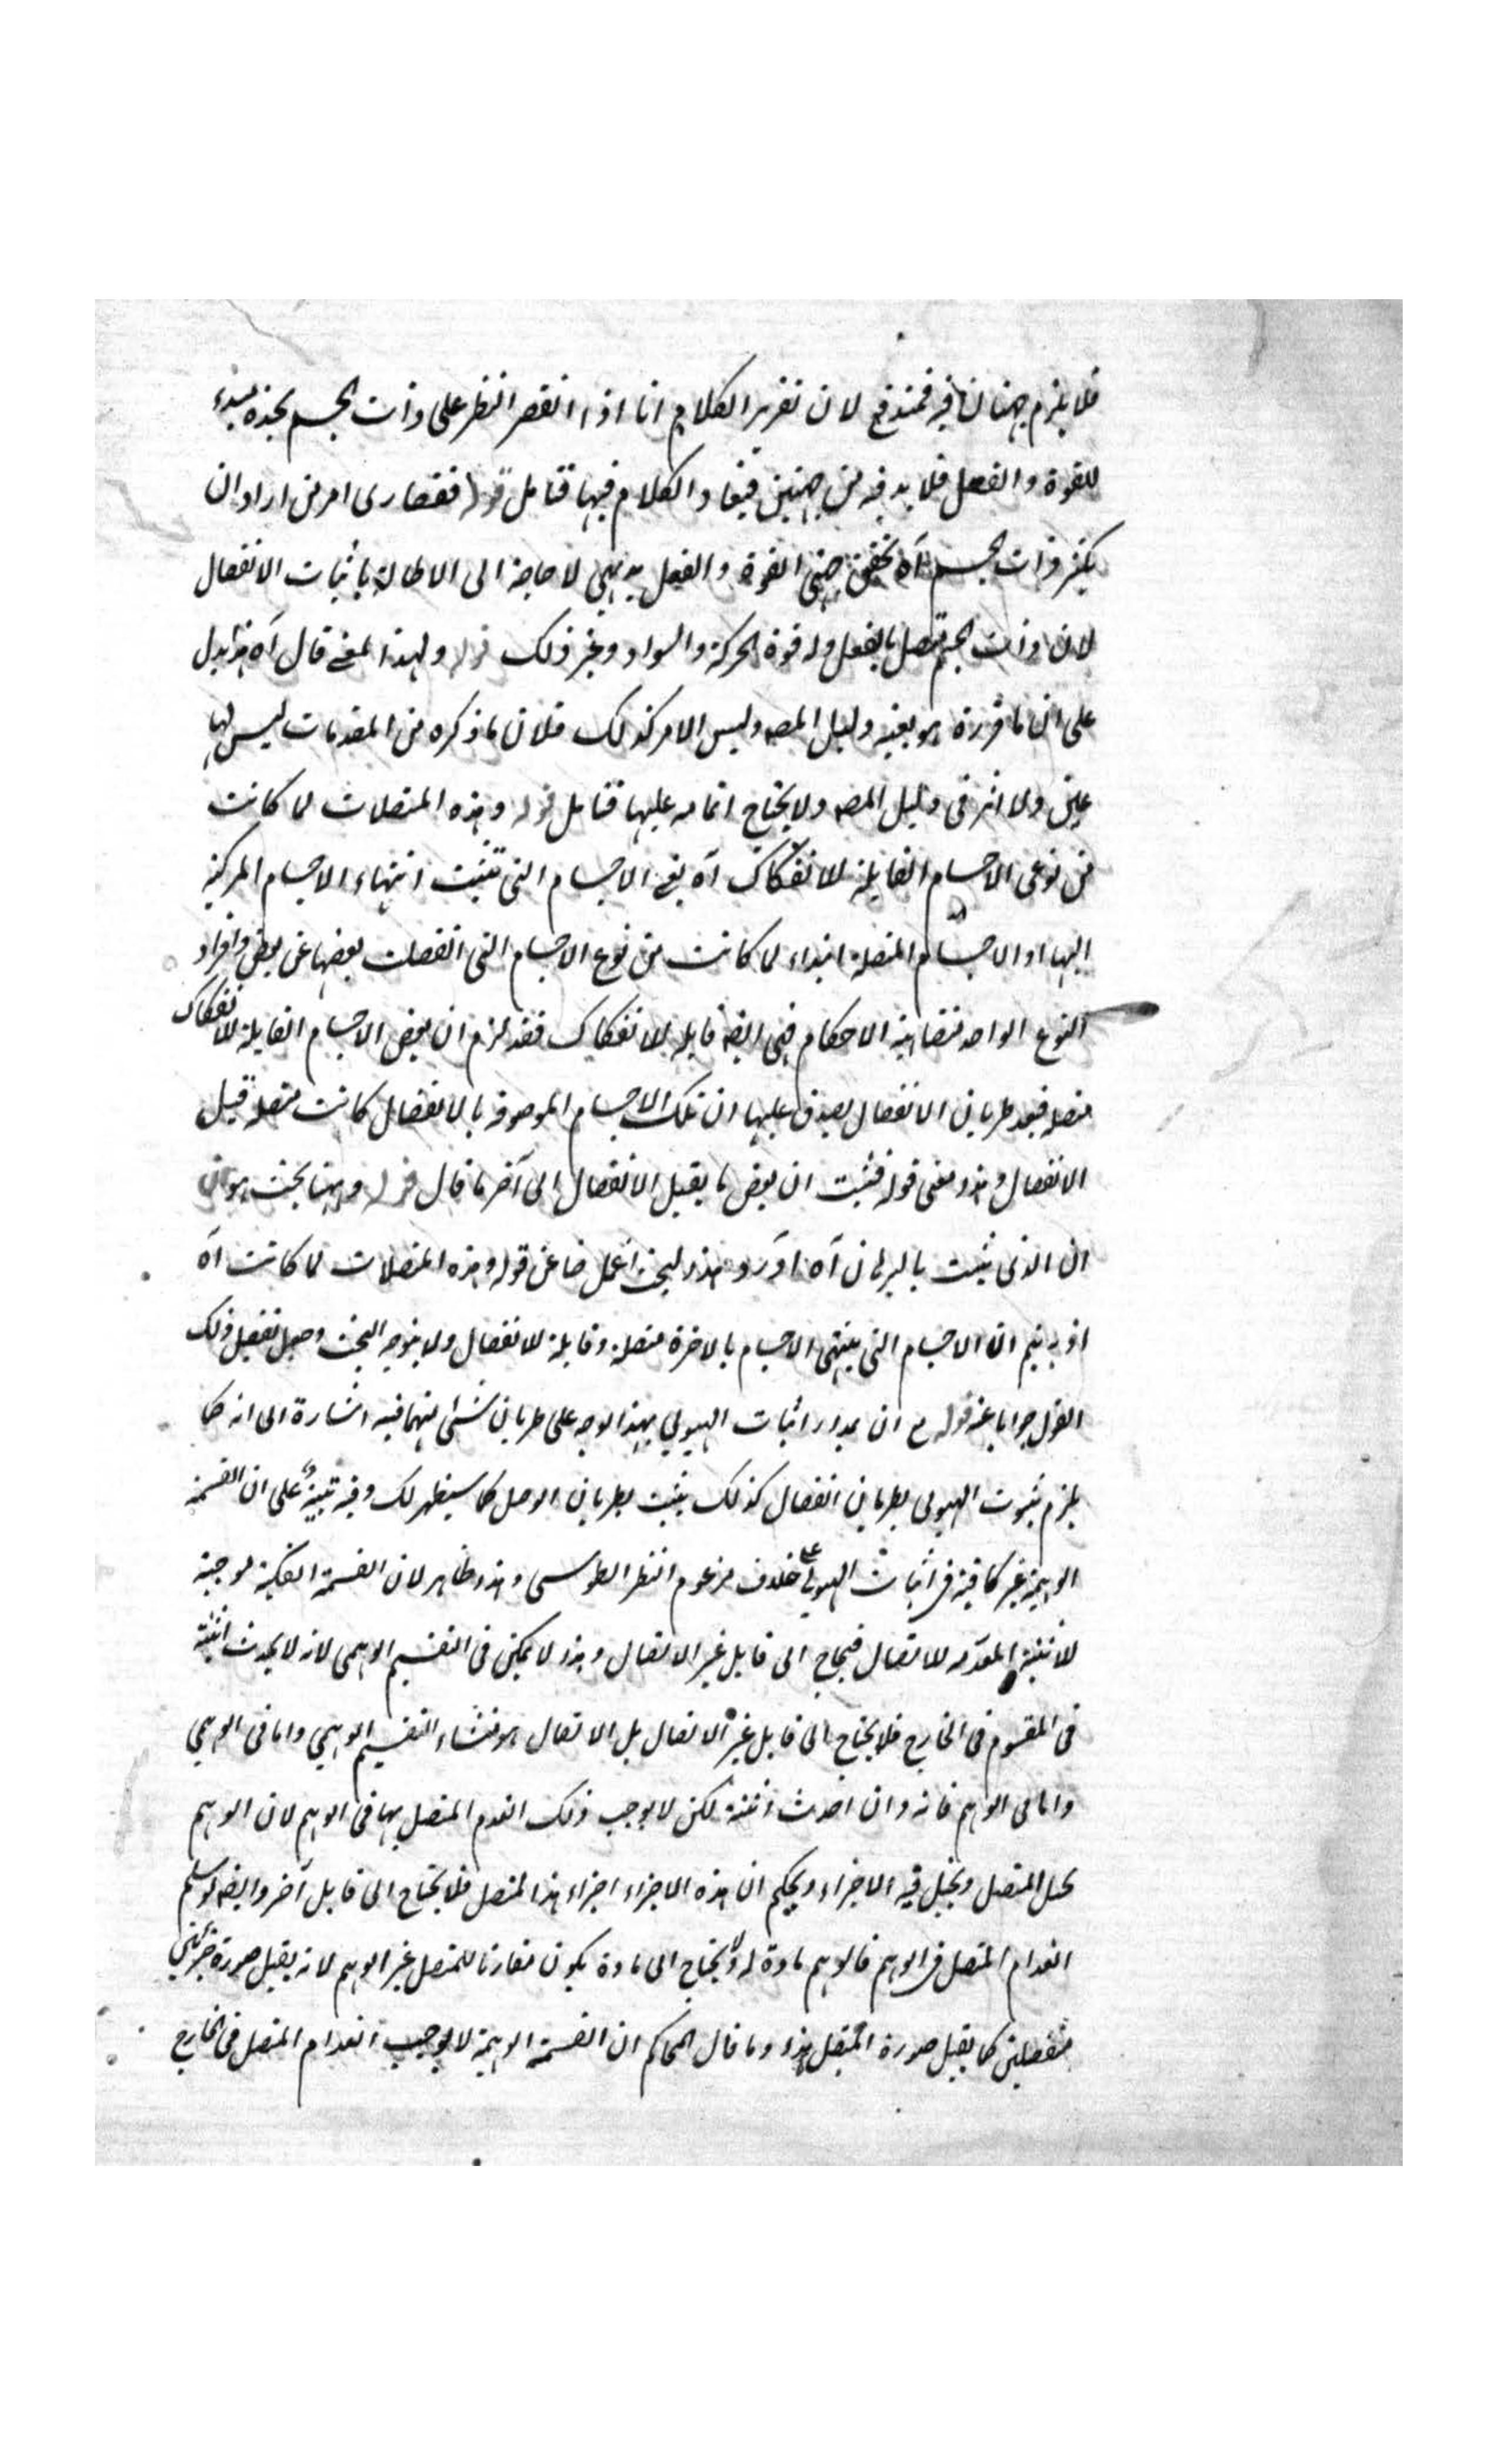 فلا يلزم جهتان فيه فمندفع لان تقرير الكلام انا اذا انقصر النظر على ذات الجسم نجده مبدء
للقوة والفعل فلا بد فيه من جهتين فيعاد الكلام فيها فتامل قوله فقصارى امر من اراد ان
يكثر ذات الجسم آه تحقق جهتى القوة والفعل بديهى لا حاجة الى الاطالة باثبات الانفصال
لان ذات الجسم متصل بالفعل وله قوة الحركة والسواد وغير ذلك قوله ولهذا المعنى قال آه هذا يدل
على ان ما قرره هو بعينه دليل المصه وليس الامر كذلك فلان ما ذكره من المقدمات ليس لها
عين ولا اثر فى دليل المصه ولا يحتاج اتمامه عليها فتامل قوله وهذه المتصلات لما كانت
من نوعى الاجسام القابلة للانفكاك آه يعنى الاجسام التى تثبت انتهاء الاجسام المركبة
اليها او الاجسام المتصلة ابتداء لما كانت من نوع الاجسام التى انفصلت بعضها عن بعض وافراد
النوع الواحد متشابهة الاحكام فهى ايضه قابلة للانفكاك فقد لزم ان بعض الاجسام القابلة للانفكاك
متصلة فبعد طريان الانفصال يصدق عليها ان تلك الاجسام الموصوفة بالانفصال كانت متصلة قبل
الانفصال وهذا معنى قوله فثبت ان بعض ما يقبل الانفصال الى آخر ما قال قوله وههنا بحث هو ان
ان الذى يثبت بالبرهان آه اورد هذا البحث اغماضا عن قوله وهذه المتصلات لما كانت آه
اذ به يتم ان الاجسام التى ينتهى الاجسام بالاخرة متصلة وقابلة للانفصال ولا يتوجه البحث وجعل تفصيل ذلك
القول جوابا عنه قوله مع ان مدار اثبات الهيولى بهذا الوجه على طريان شئ منهما فيه اشارة الى انه كما
يلزم ثبوت الهيولى بطريان انفصال كذلك يثبت بطريان الوصل كما سيظهر لك وفيه تنبيه على ان القسمة
الوهمية غير كافية فى اثبات الهيولى على خلاف مزعوم النظر الطوسى وهذا ظاهر لان القسمة الفكية موجبة
للاثنينية المعدمة للاتصال فيحتاج الى قابل غير الاتصال وهذا لا يمكن فى التقسيم الوهمى لانه لا يحدث اثنينية
فى المقسوم فى الخارج فلا يحتاج الى قابل غير الاتصال بل الاتصال هو منشاء التقسيم الوهمى واما فى الوهمى
واما فى الوهم فانه وان احدث اثنينة لكن لا يوجب ذلك انعدم المتصل بها فى الوهم لان الوهم
يحلل المتصل ويخيل فيه الاجزاء ويحكم ان هذه الاجزاء اجزاء هذا المتصل فلا يحتاج الى قابل آخر وايضه لو سلم
انعدام المتصل فى الوهم فالوهم مادة له ولا يحتاج الى مادة يكون مقارنا للمتصل غير الوهم لانه يقبل صورة جزئين
منفصلين كما يقبل صورة المتصل هذا وما قال المحاكم ان القسمة الوهمية لا يوجب انعدام المتصل فى الخارج